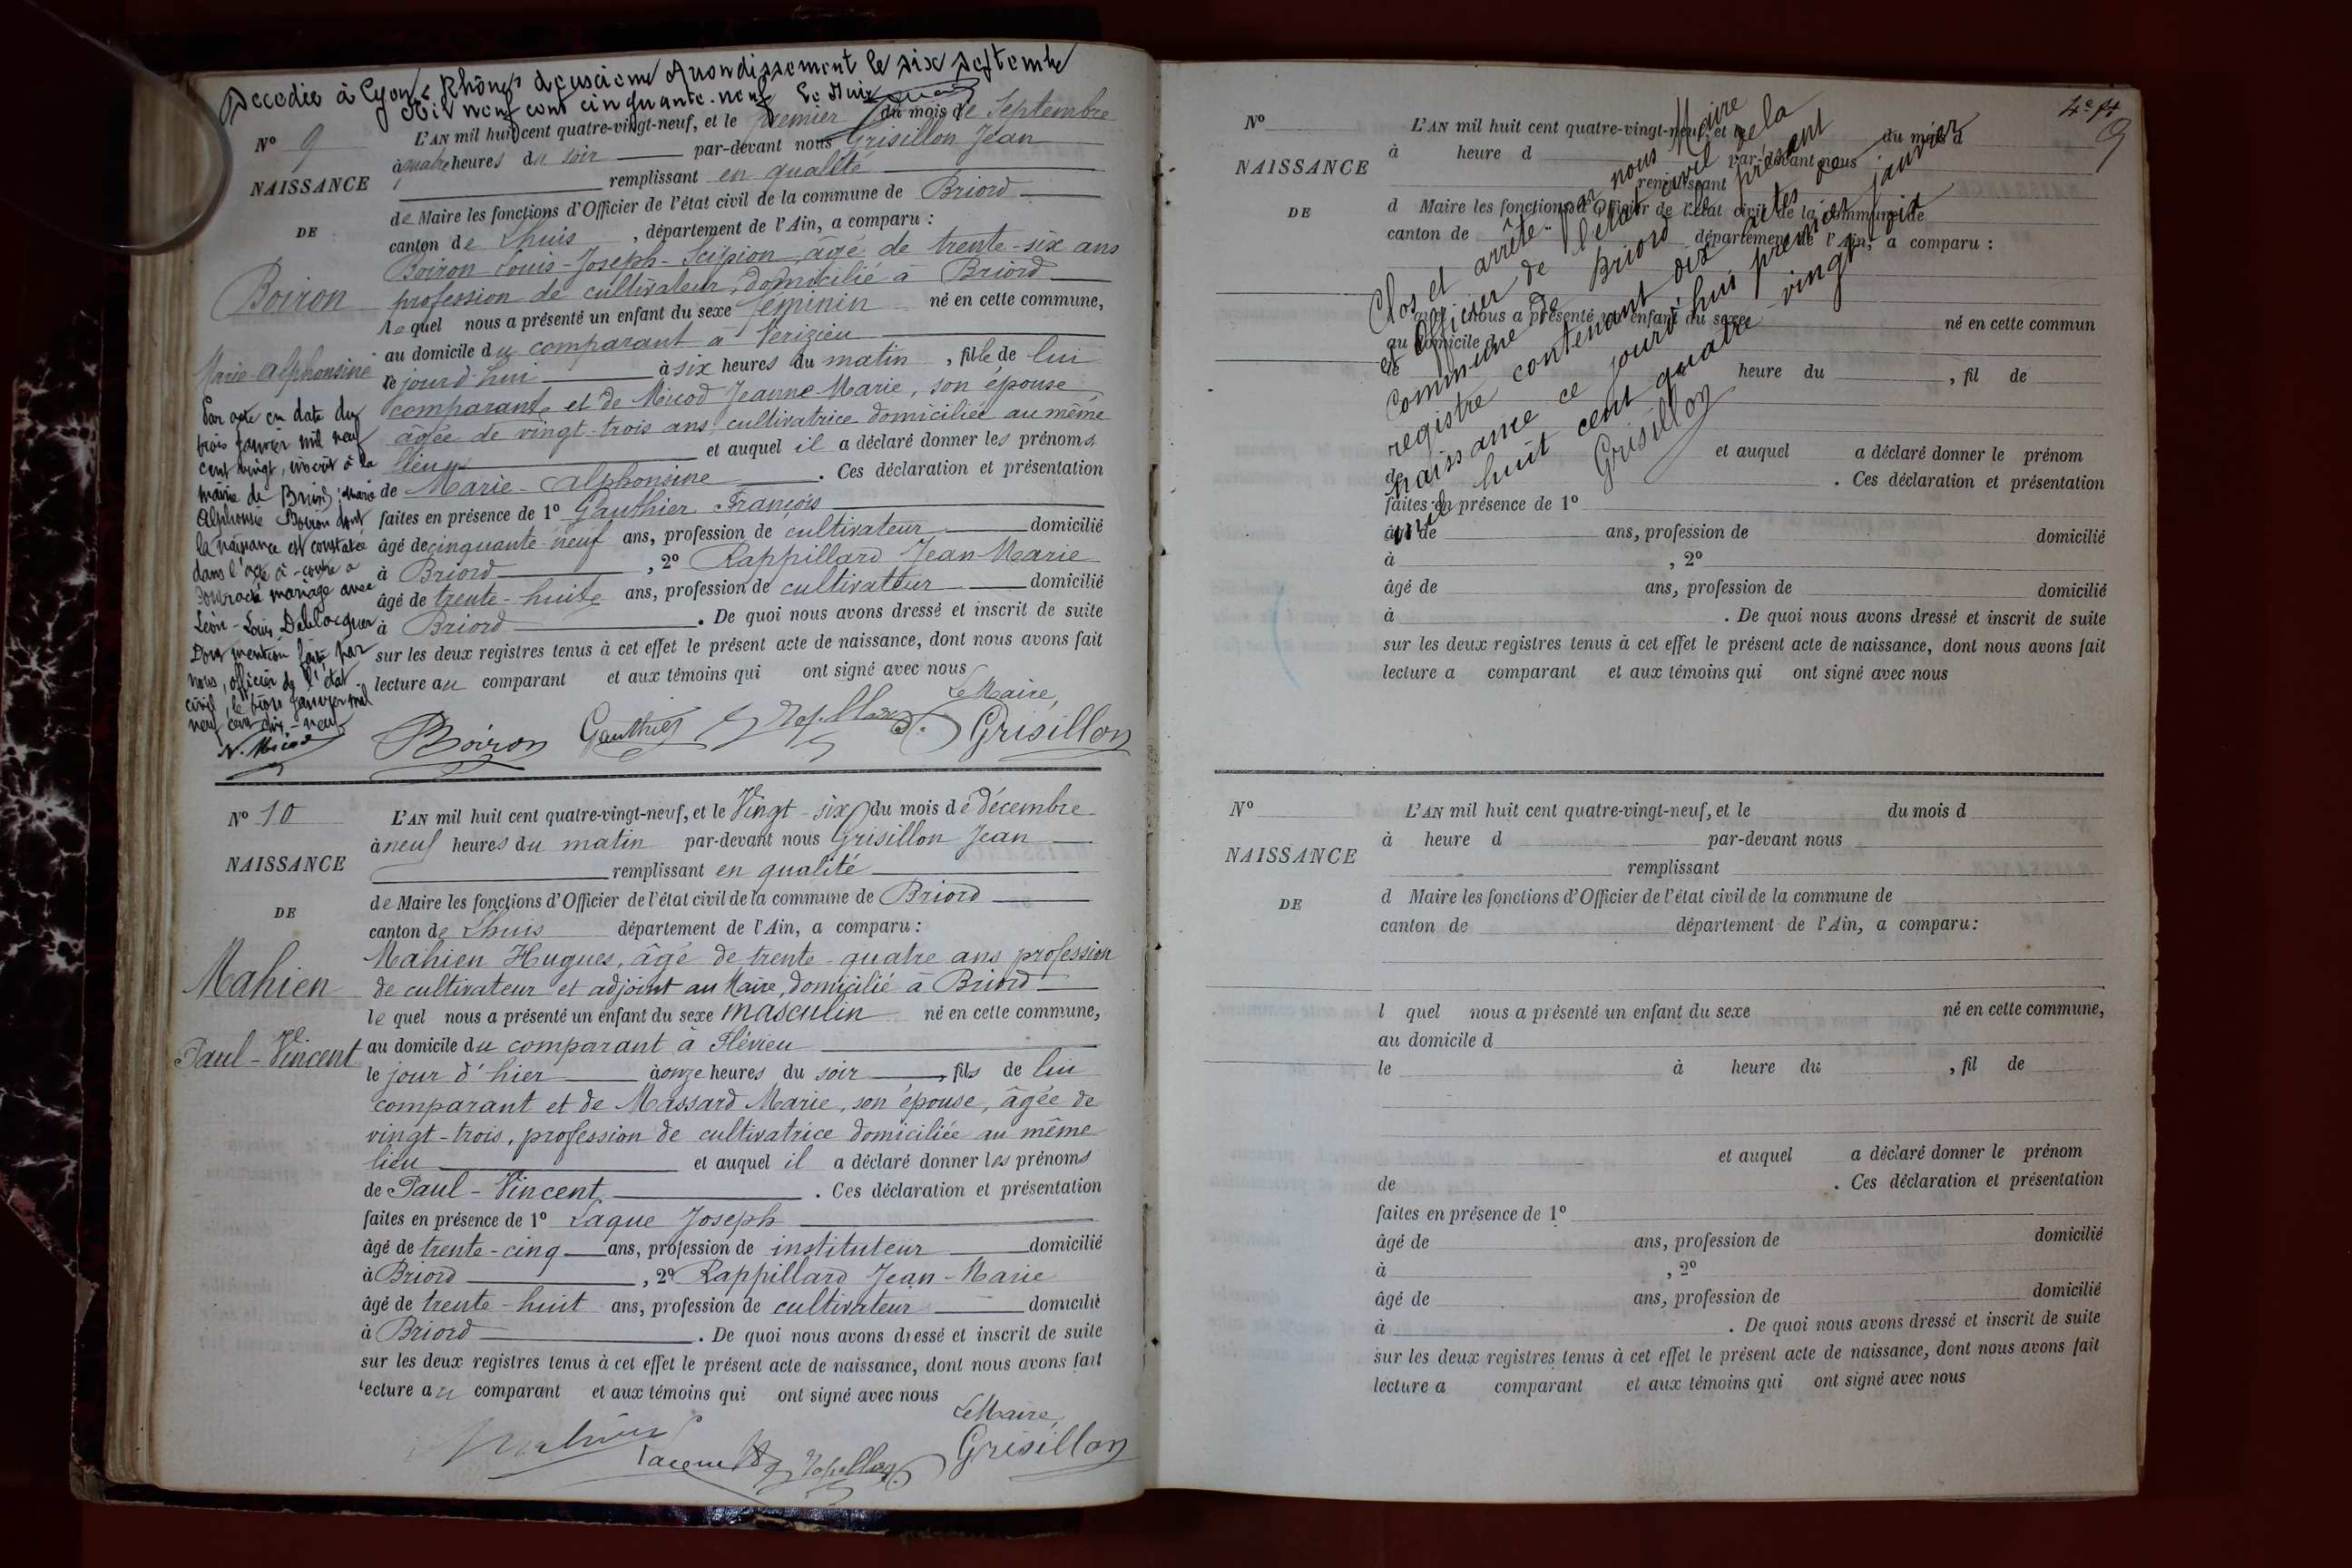 Décédée à Lyon (Rhône) deuxième Arrondissement le six septembre
Mil neuf cent cinquante-neuf Le Maire
N° 9
NAISSANCE
DE
Boiron
Marie-Alphonsine
Par acte en date du
trois janvier mil neuf
cent vingt, inscrit à la
mairie de Briord, Marie
Alphonsie Boiron dont
la naissance est constatée
dans l'acte ci-contre a
contracté mariage avec
Léon-Louis
Dont mention faite par
nous, officier de l'état
civil, le trois janvier mil
neuf cent dix-neuf
L'AN mil huit cent quatre-vingt-neuf, et le premier du mois de Septembre
à quatre heures du soir par-devant nous Grisillon Jean
remplissant en qualité
de Maire les fonctions d'Officier de l'état civil de la commune de Briord
canton de Lhuis , département de l'Ain, a comparu :
Boiron Louis-Joseph-Scipion, âgé de trente-six ans
profession de cultivateur, domicilié à Briord
lequel nous a présenté un enfant du sexe féminin né en cette commune,
au domicile du comparant à Vérizieu
le jourd'hui à six heures du matin , fille de lui
comparant et de Micod Jeanne-Marie, son épouse
âgée de vingt-trois ans, cultivatrice domiciliée au même
lieu et auquel il a déclaré donner les prénoms
de Marie-Alphonsine . Ces déclaration et présentation
faites en présence de 1° Gauthier François
âgé de cinquante-neuf ans, profession de cultivateur domicilié
à Briord , 2° Rappillard Jean-Marie
âgé de trente-huit ans, profession de cultivateur domicilié
à Briord . De quoi nous avons dressé et inscrit de suite
sur les deux registres tenus à cet effet le présent acte de naissance, dont nous avons fait
lecture au comparant et aux témoins qui ont signé avec nous
Le Maire,
Boiron Gauthier Grisillon
N° 10
NAISSANCE
DE
Mahien
Paul-Vincent
L'AN mil huit cent quatre-vingt-neuf, et le Vingt-six du mois de décembre
à neuf heures du matin par-devant nous Grisillon Jean
remplissant en qualité
de Maire les fonctions d'Officier de l'état civil de la commune de Briord
canton de Lhuis département de l'Ain, a comparu :
Mahien Hugues, âgé de trente-quatre ans profession
de cultivateur et adjoint au Maire, domicilié à Briord
le quel nous a présenté un enfant du sexe masculin né en cette commune,
au domicile du comparant à Flévieu
le jour d'hier à onze heures du soir , fils de lui
comparant et de Massard Marie, son épouse, âgée de
vingt-trois, profession de cultivatrice domiciliée au même
lieu et auquel il a déclaré donner les prénoms
de Paul-Vincent . Ces déclaration et présentation
faites en présence de 1° Laque Joseph
âgé de trente-cinq ans, profession de instituteur domicilié
à Briord , 2° Rappillard Jean-Marie
âgé de trente-huit ans, profession de cultivateur domicilié
à Briord . De quoi nous avons dressé et inscrit de suite
sur les deux registres tenus à cet effet le présent acte de naissance, dont nous avons fait
lecture au comparant et aux témoins qui ont signé avec nous
Le Maire,
Grisillon
9
N°
NAISSANCE
DE
L'AN mil huit cent quatre-vingt-neuf, et le du mois d
à heure d par-devant nous
remplissant
d Maire les fonctions d'Officier de l'état civil de la commune de
canton de département de l'Ain, a comparu :
quel nous a présenté un enfant du sexe né en cette commun
au domicile d
le heure du , fil de
et auquel a déclaré donner le prénom
de . Ces déclaration et présentation
faites en présence de 1°
âgé de ans, profession de domicilié
à , 2°
âgé de ans, profession de domicilié
à . De quoi nous avons dressé et inscrit de suite
sur les deux registres tenus à cet effet le présent acte de naissance, dont nous avons fait
lecture a comparant et aux témoins qui ont signé avec nous
Clos et arrêté par nous Maire
et Officier de l'état civil de la
Commune de Briord le présent
registre contenant dix actes de
naissance ce jourd'hui premier janvier
mil huit cent quatre-vingt-dix
Grisillon
N°
NAISSANCE
DE
L'AN mil huit cent quatre-vingt-neuf, et le du mois d
à heure d par-devant nous
remplissant
d Maire les fonctions d'Officier de l'état civil de la commune de
canton de département de l'Ain, a comparu :
l quel nous a présenté un enfant du sexe né en cette commune,
au domicile d
le à heure du , fil de
et auquel a déclaré donner le prénom
de . Ces déclaration et présentation
faites en présence de 1°
âgé de ans, profession de domicilié
à , 2°
âgé de ans, profession de domicilié
à . De quoi nous avons dressé et inscrit de suite
sur les deux registres tenus à cet effet le présent acte de naissance, dont nous avons fait
lecture a comparant et aux témoins qui ont signé avec nous